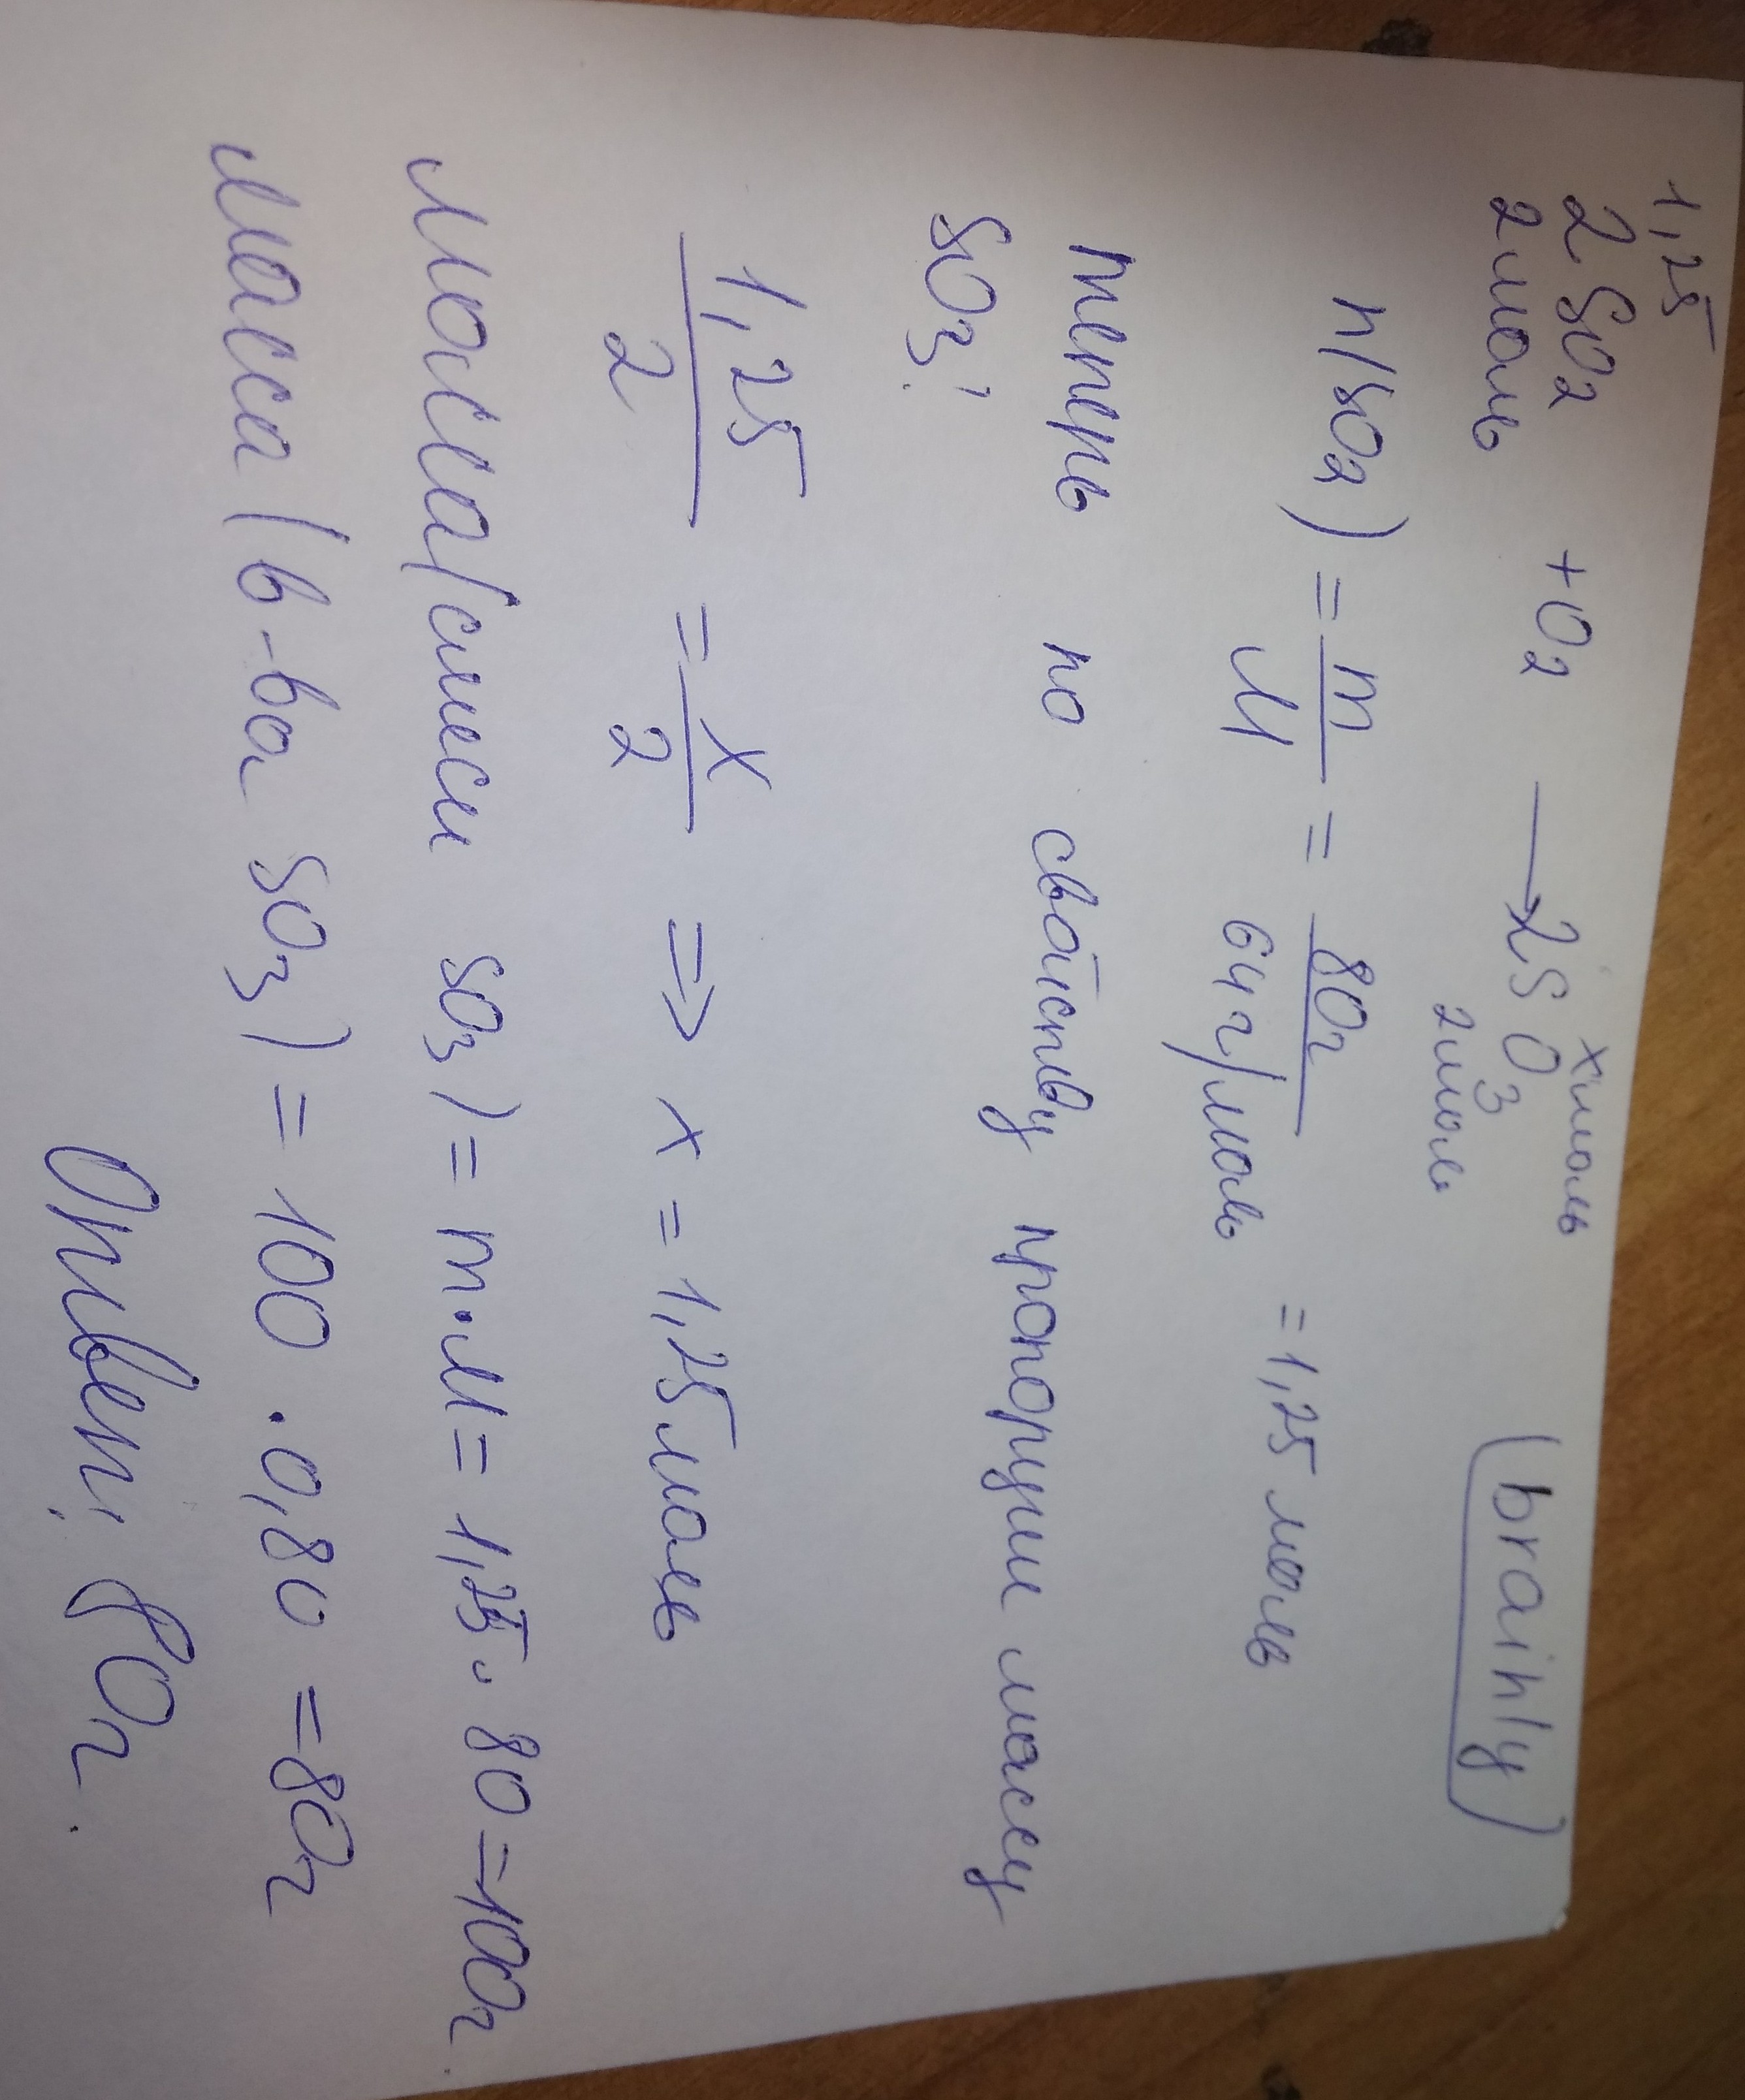 1,25 х моль
2SO2 + O2 → 2SO3 (brainly)
2моль 2моль
n(SO2) = m/M = 80г/64г/моль = 1,25 моль
теперь по свойству пропорции массу
SO3:
1,25/2 = х/2 ⇒ х = 1,25моль
Масса(смеси SO3) = m·M = 1,25·80=100г.
Масса (в-ва SO3) = 100·0,80 = 80г
Ответ: 80г.